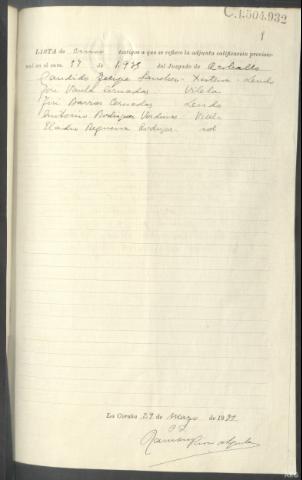 C.1.504.932
1
LISTA de testigos a que se refiere la adjunta calificación provisio-
nal en el sum. 37 de 1.938 del Juzgado de Carballo
Candido Sanchez - Lendo
José Varela Cernadas Vilela
José Barrios Cernadas Lendo
Antonio Rodriguez Verdines - Vilela
Eladio Regueira Rodriguez sol
La Coruña 29 de Mayo de 1939